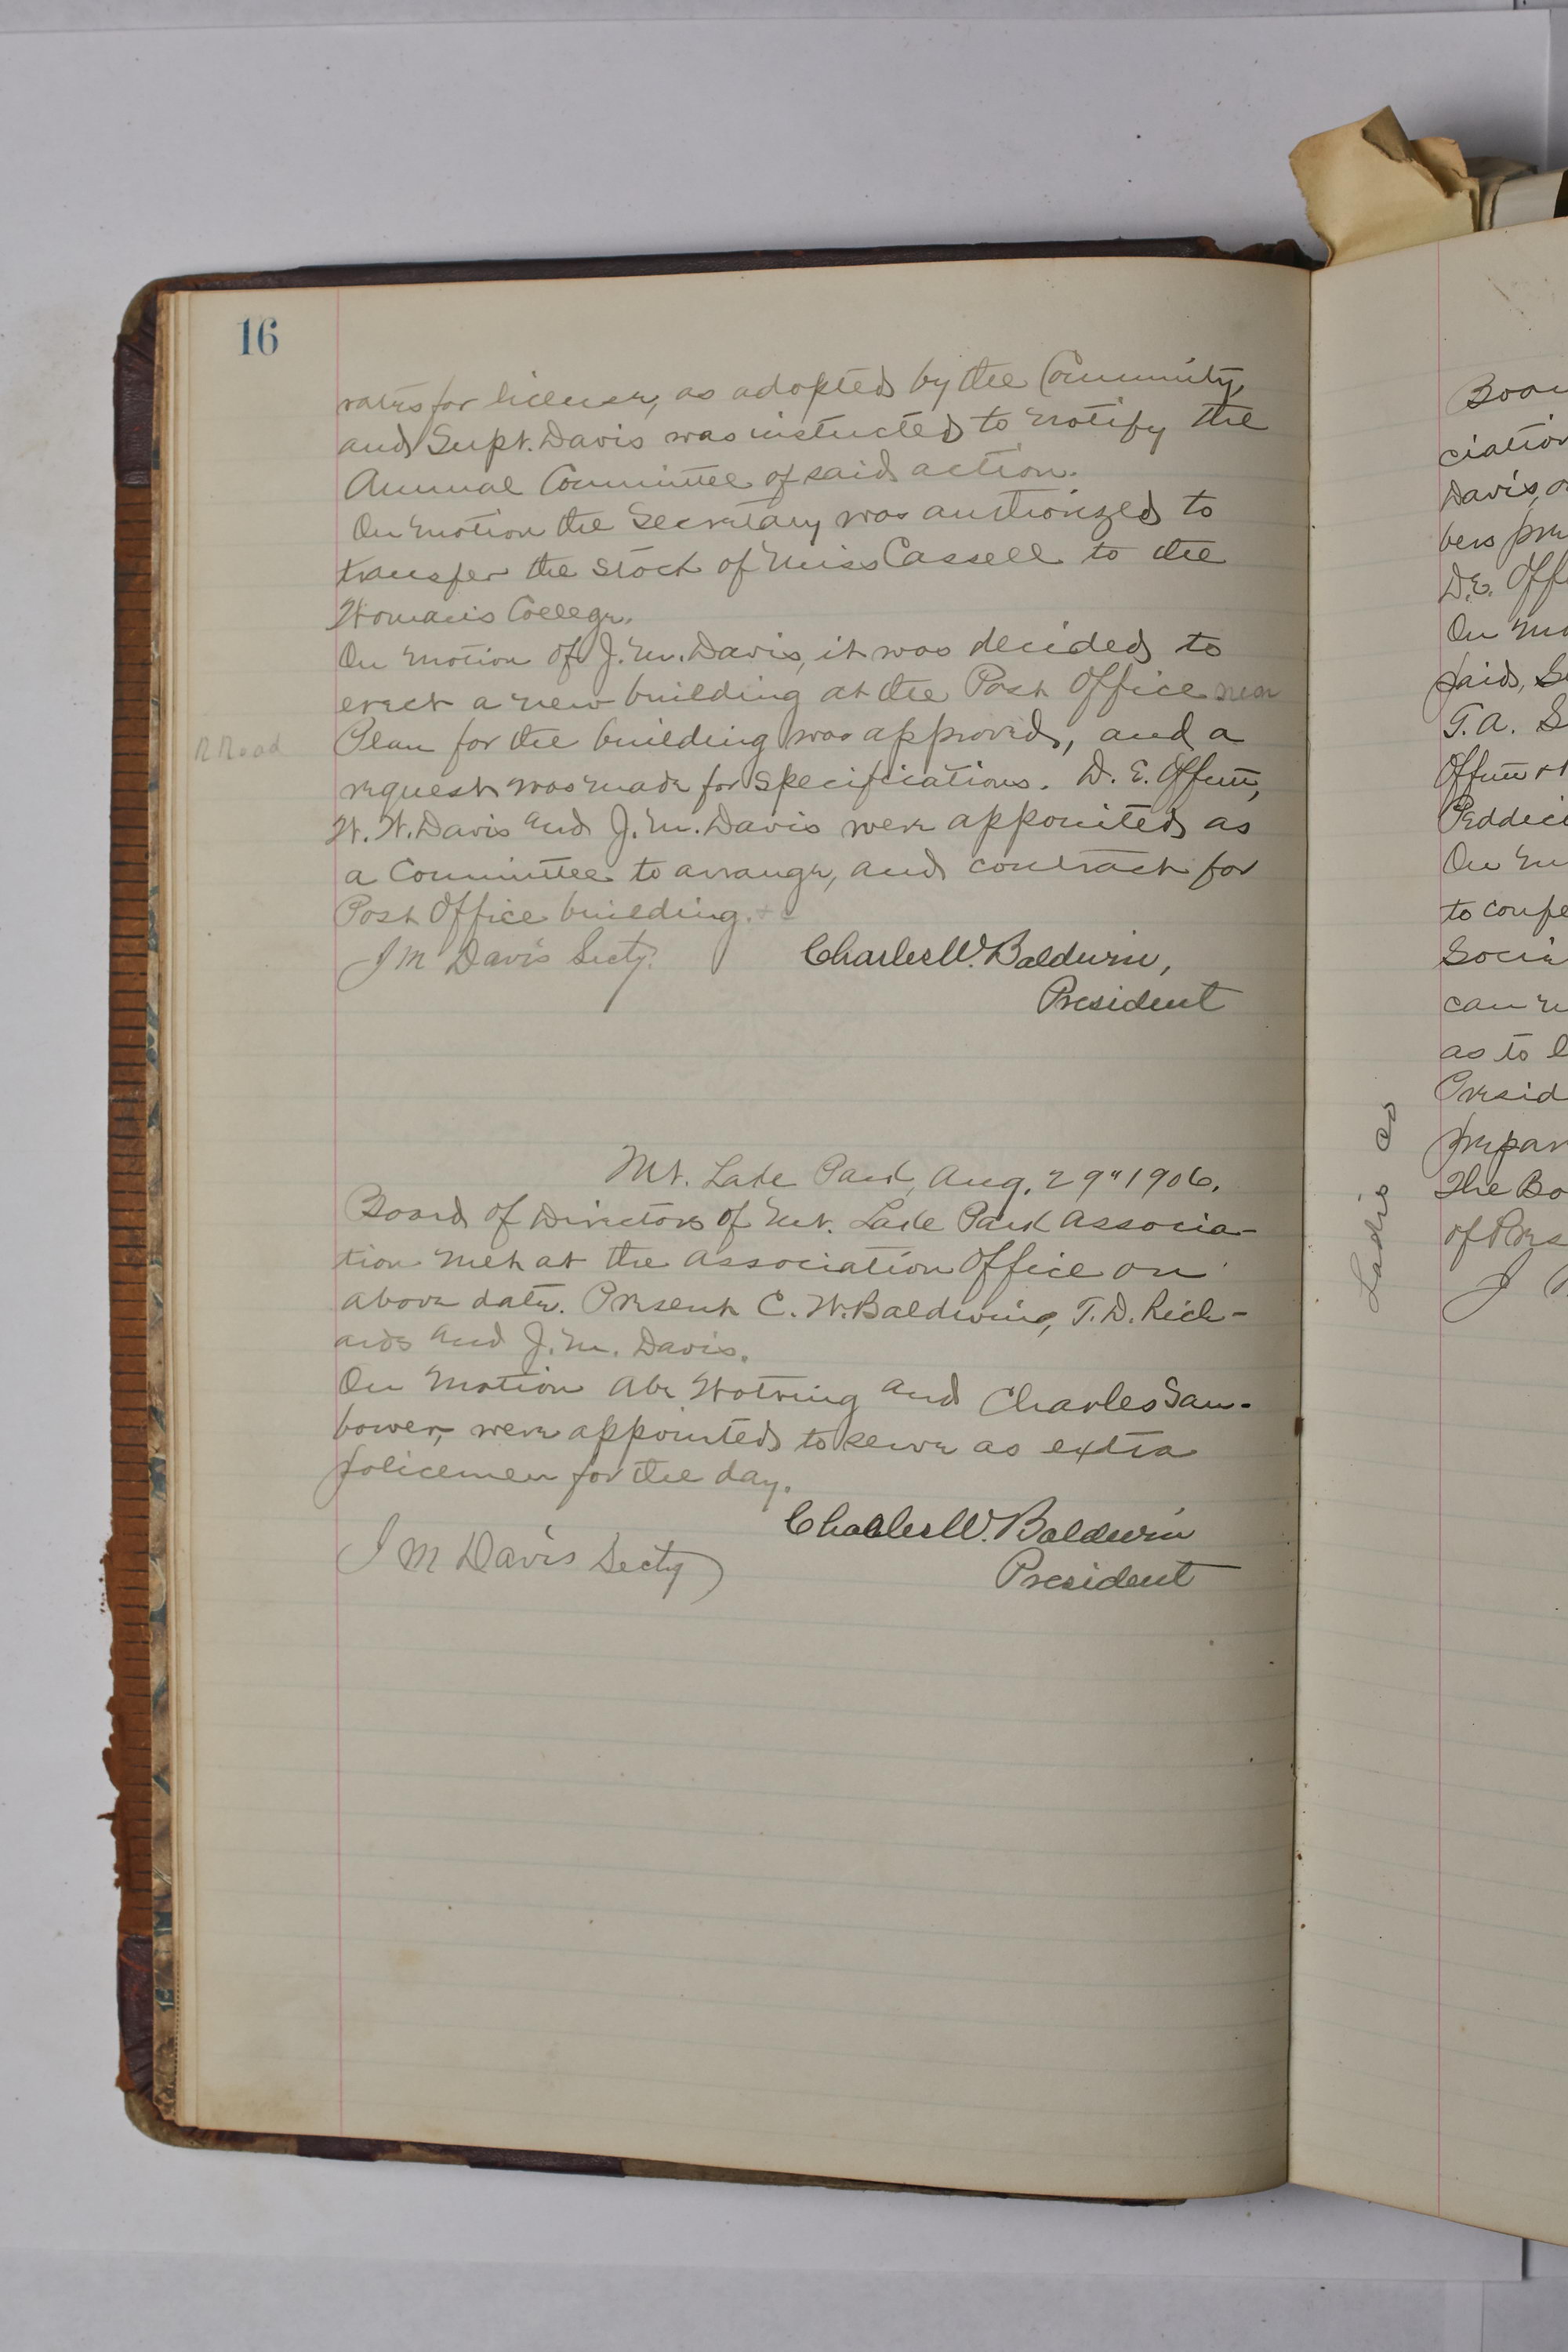 16
rates for license, as adopted by the Community,
and Supt. Davis was instucted to notify the
Annual Committee of said action.
On motion the Secretary was authorized to
transfer the stock of Miss Cassell to the
Woman's College.
On motion of J. M. Davis, it was decided to
erect a new building at the Post Office near
R Road
Plan for the building was approved, and a
request was made for specificiations. D. E. Offutt,
W. W. Davis and J. M. Davis were appointed as
a Committee to arrange, and contract for
Post Office building.
J M Davis Secty.
Charles W. Baldwin,
President
Mt. Lake Park, Aug. 29" 1906.
Board of Directors of Mt. Lake Park Associa-
tion met at the Association Office on
above date. Present C. W. Baldwin, T. D. Rich-
ards and J. M. Davis.
On motion Abe Wotring and Charles Sau-
bower, were appointed to serve as extra
policemen for the day.
Charles W. Baldwin
President
J M Davis Secty
Boar
ciation
Davis,
bers pre
D. E. Off
On mo
paid,
T. A. S
Offutt
Peddic
On m
to confe
Socie
can
as to
Presid
prepar
The Bo
of Pres
J